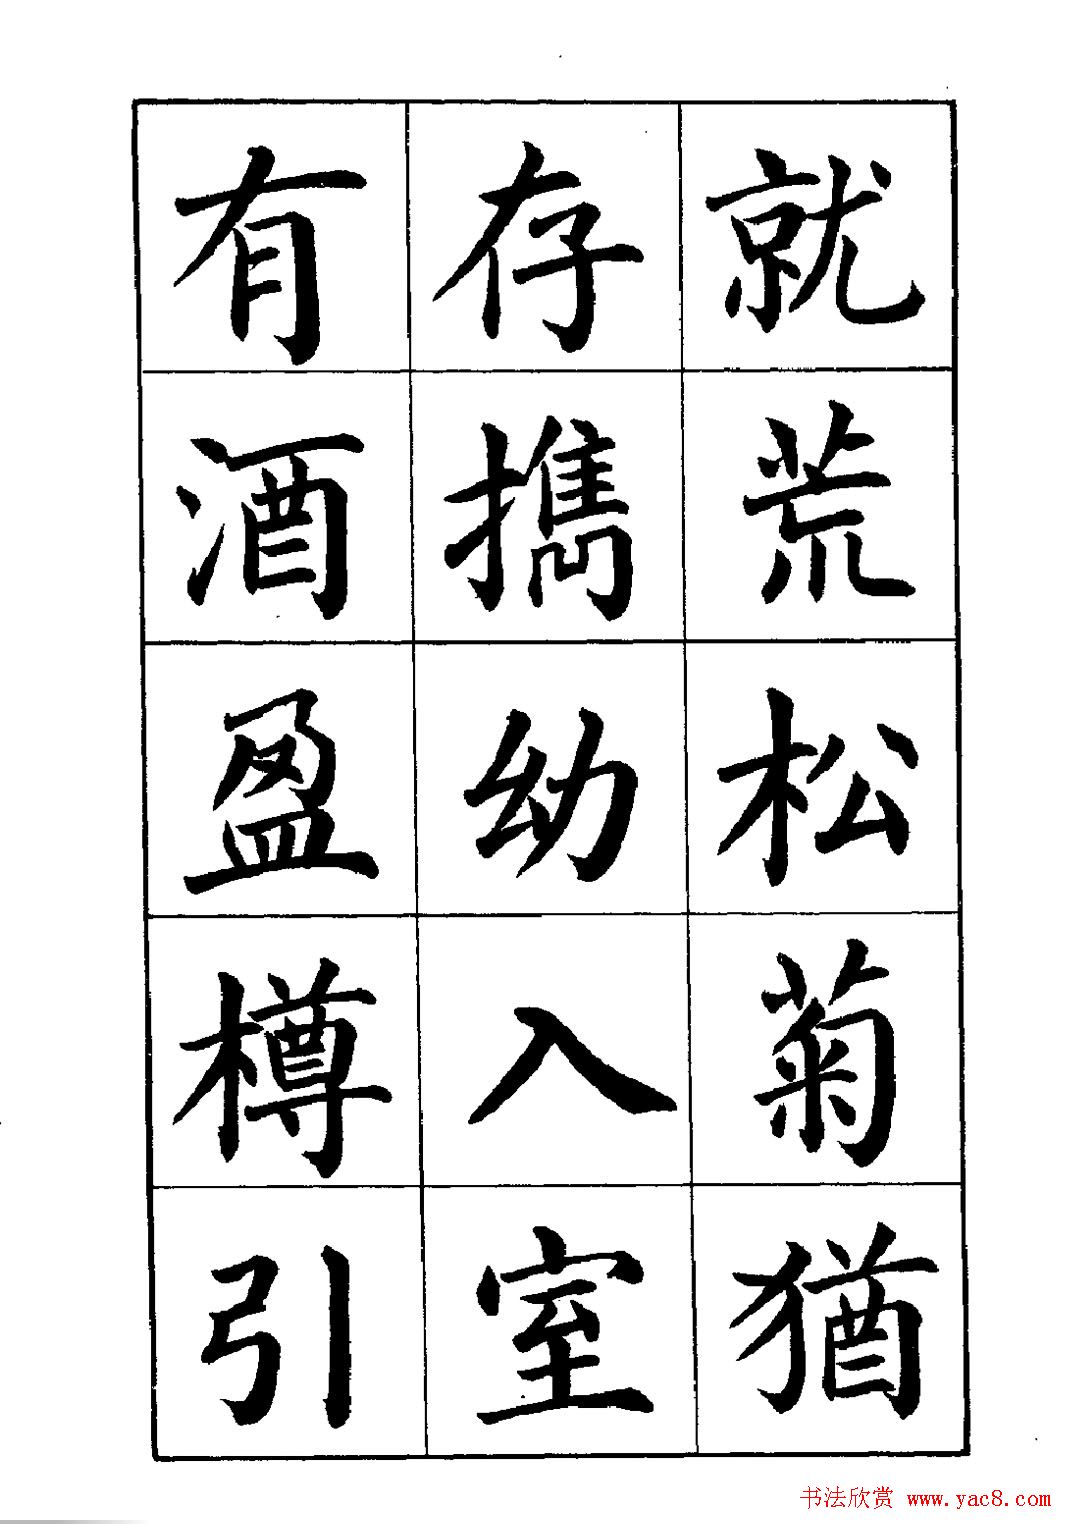 就荒松菊猶
存攜幼入室
有酒盈樽引
书法欣赏 www.yac8.com